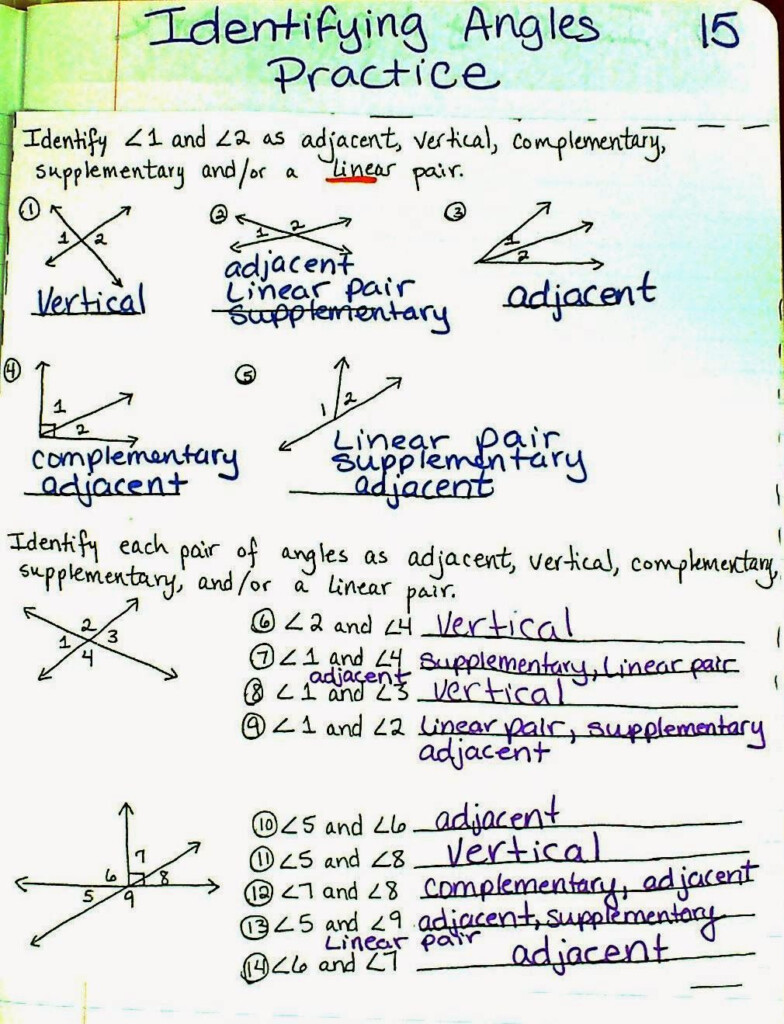 Identifying Angles 15
Practice
Identify ∠1 and ∠2 as adjacent, vertical, complementary,
supplementary and/or a linear pair.
① 1 2
vertical
② 1 2
adjacent
Linear pair
supplementary
③ 1 2
adjacent
④ 1 2
complementary
adjacent
⑤ 1 2
Linear pair
supplementary
adjacent
Identify each pair of angles as adjacent, vertical, complementary,
supplementary, and/or a linear pair.
1 2 3 4
⑥ ∠2 and ∠4 vertical
⑦ ∠1 and ∠4 supplementary, Linear pair
adjacent
⑧ ∠1 and ∠3 vertical
⑨ ∠1 and ∠2 Linear pair, supplementary
adjacent
5 6 7 8 9
⑩ ∠5 and ∠6 adjacent
⑪ ∠5 and ∠8 vertical
⑫ ∠7 and ∠8 complementary, adjacent
⑬ ∠5 and ∠9 adjacent, supplementary
Linear pair
⑭ ∠6 and ∠7 adjacent